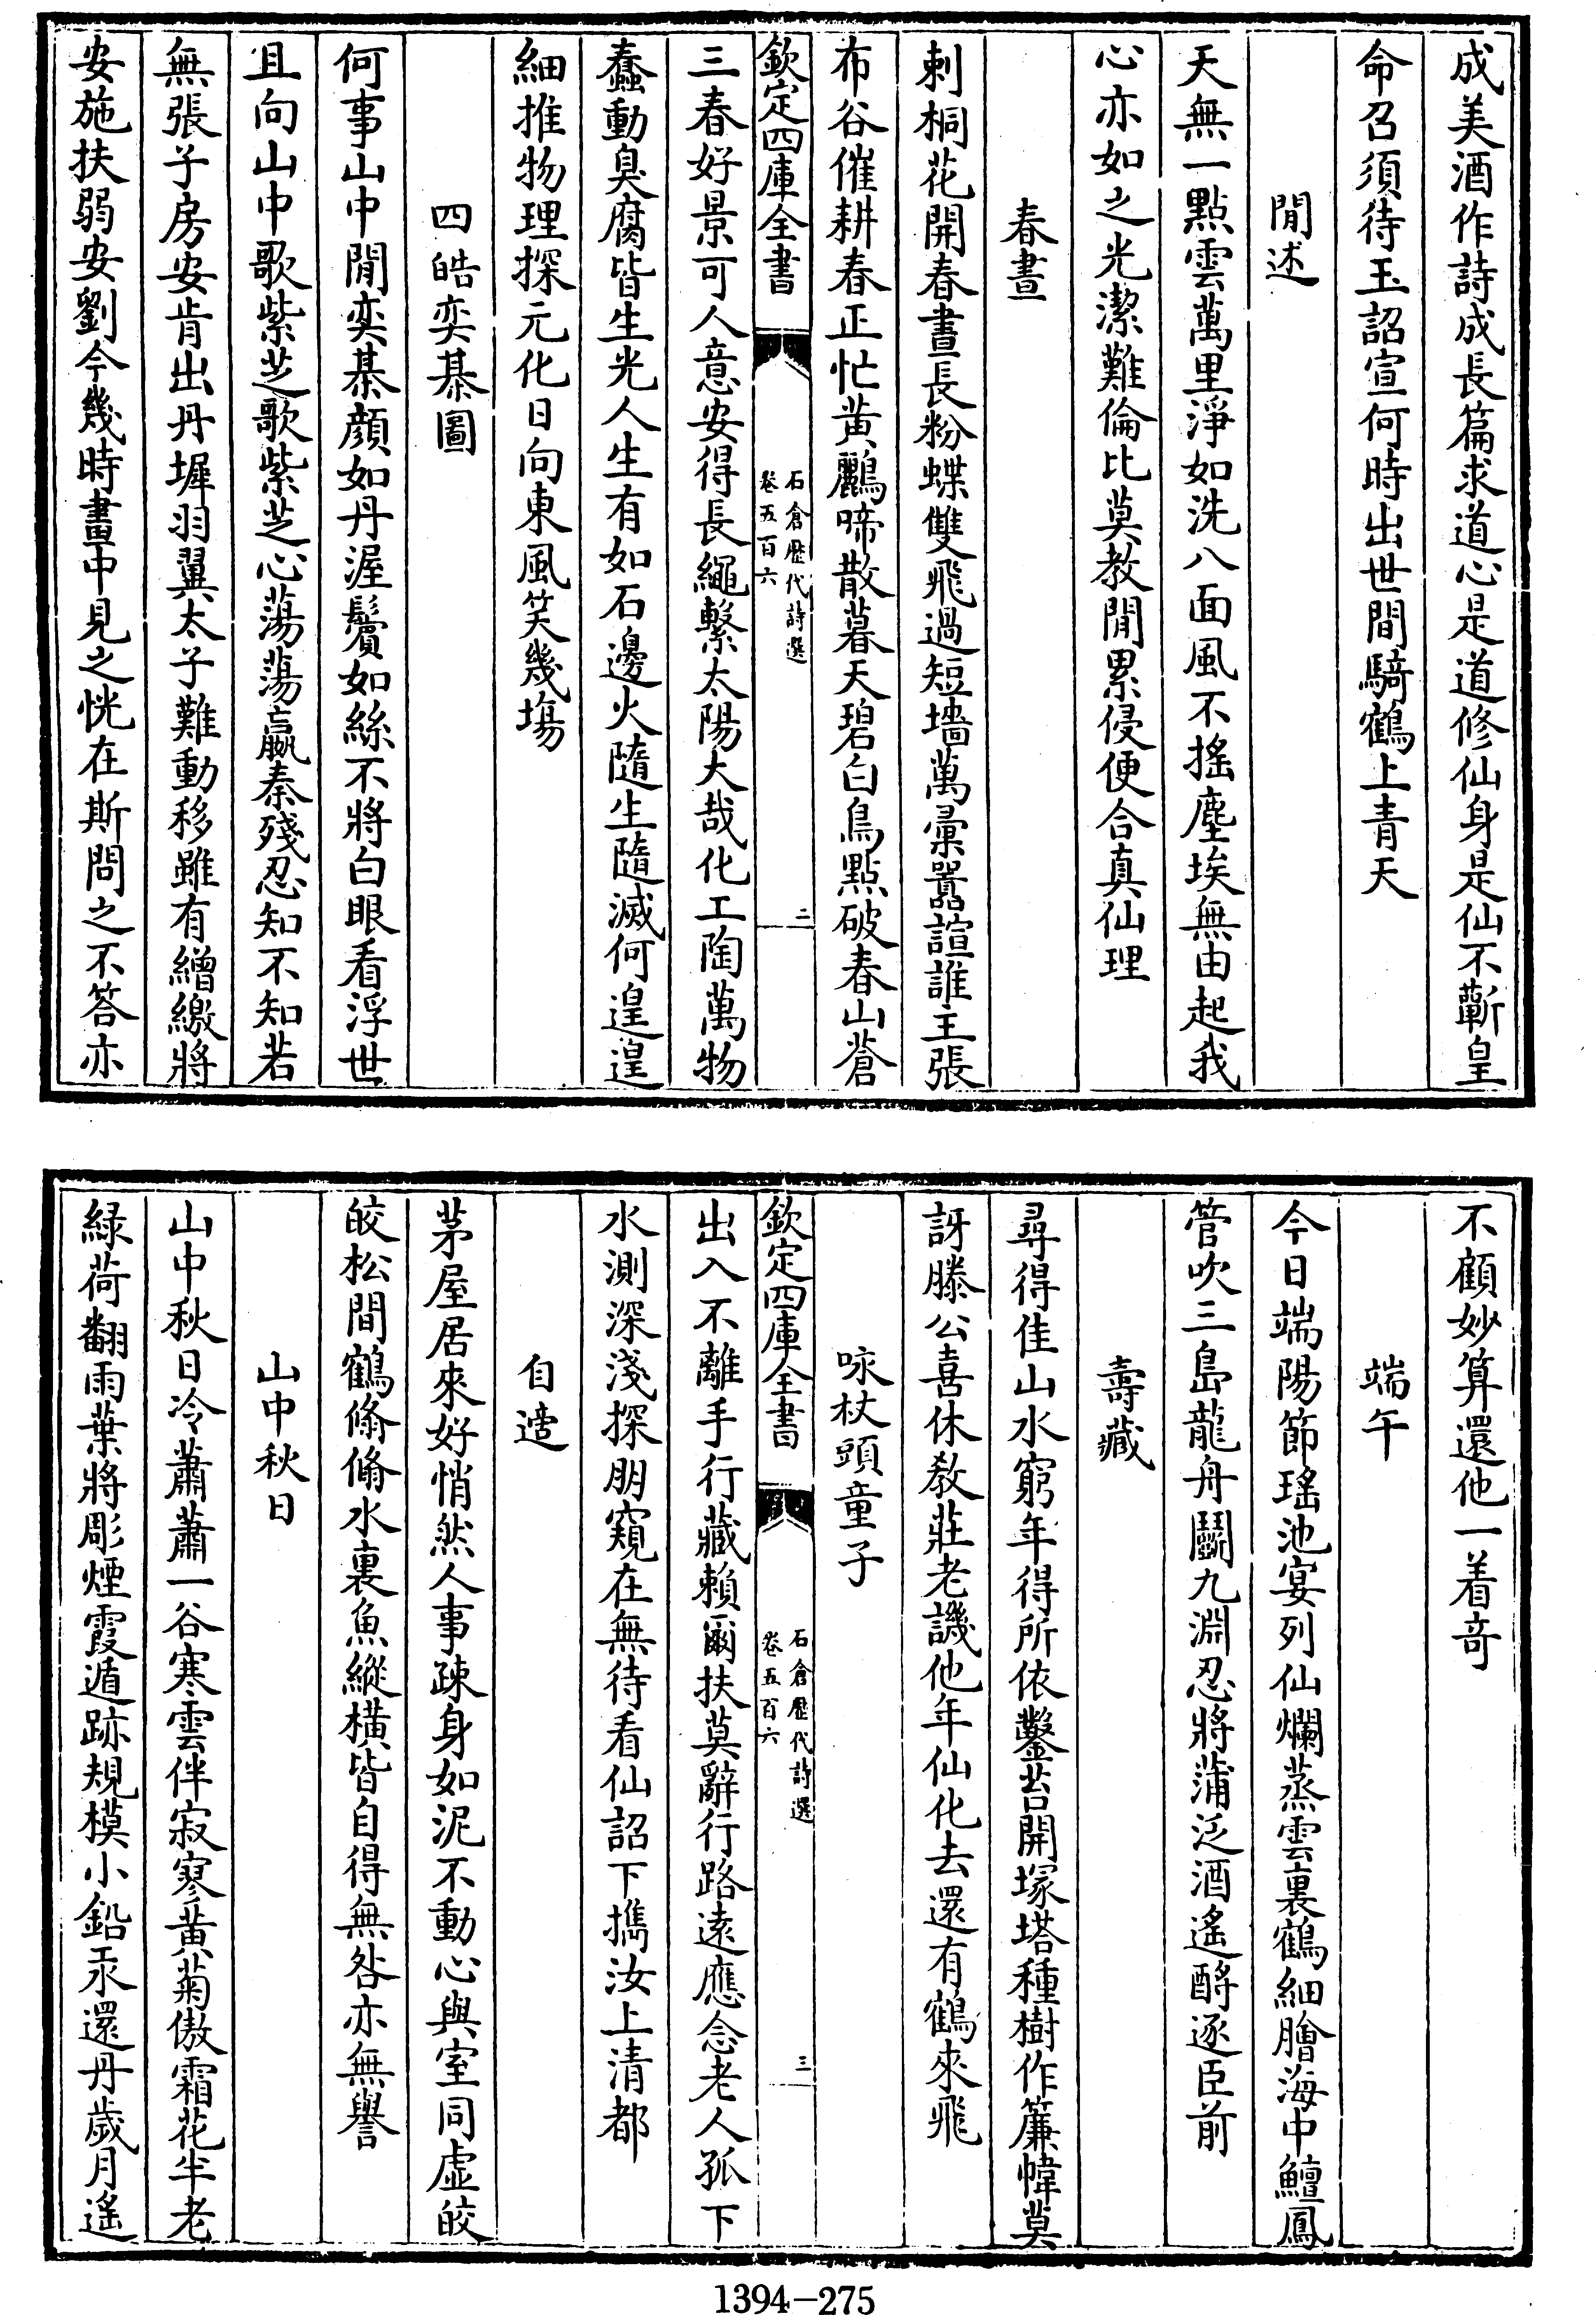 成美酒作詩成長篇求道心是道修仙身是仙不蘄皇
命召須待玉詔宣何時出世間騎鶴上青天
閒述
天無一點雲萬里淨如洗八面風不搖塵埃無由起我
心亦如之光潔難倫比莫教閒累侵便合真仙理
春晝
刺桐花開春晝長粉蝶雙飛過短墻萬彙囂諠誰主張
布谷催耕春正忙黃鸝啼散暮天碧白鳥點破春山蒼
欽定四庫全書
石倉歷代詩選
卷五百六
二
三春好景可人意安得長繩繫太陽大哉化工陶萬物
蠢動臭腐皆生光人生有如石邊火隨生隨滅何遑遑
細推物理探元化日向東風笑幾塲
四皓奕棊圖
何事山中閒奕棊顔如丹渥鬢如絲不將白眼看浮世
且向山中歌紫芝歌紫芝心蕩蕩嬴秦殘忍知不知若
無張子房安肯出丹墀羽翼太子難動移雖有繒繳將
安施扶弱安劉今幾時畫中見之恍在斯問之不答亦
不顧妙算還他一着奇
端午
今日端陽節瑤池宴列仙爛蒸雲裏鶴細膾海中鱣鳳
管吹三島龍舟鬬九淵忍將蒲泛酒遙酹逐臣前
壽藏
尋得佳山水窮年得所依鑿苔開塚塔種樹作簾幃莫
訝滕公喜休教莊老譏他年仙化去還有鶴來飛
咏杖頭童子
欽定四庫全書
石倉歷代詩選
卷五百六
三
出入不離手行藏賴爾扶莫辭行路遠應念老人孤下
水測深淺探朋窺在無待看仙詔下擕汝上清都
自適
茅屋居來好悄然人事疎身如泥不動心與室同虛皎
皎松間鶴翛翛水裏魚縱橫皆自得無咎亦無譽
山中秋日
山中秋日冷蕭蕭一谷寒雲伴寂寥黃菊傲霜花半老
緑荷翻雨葉將彫煙霞遁跡規模小鉛汞還丹歲月遙
1394-275